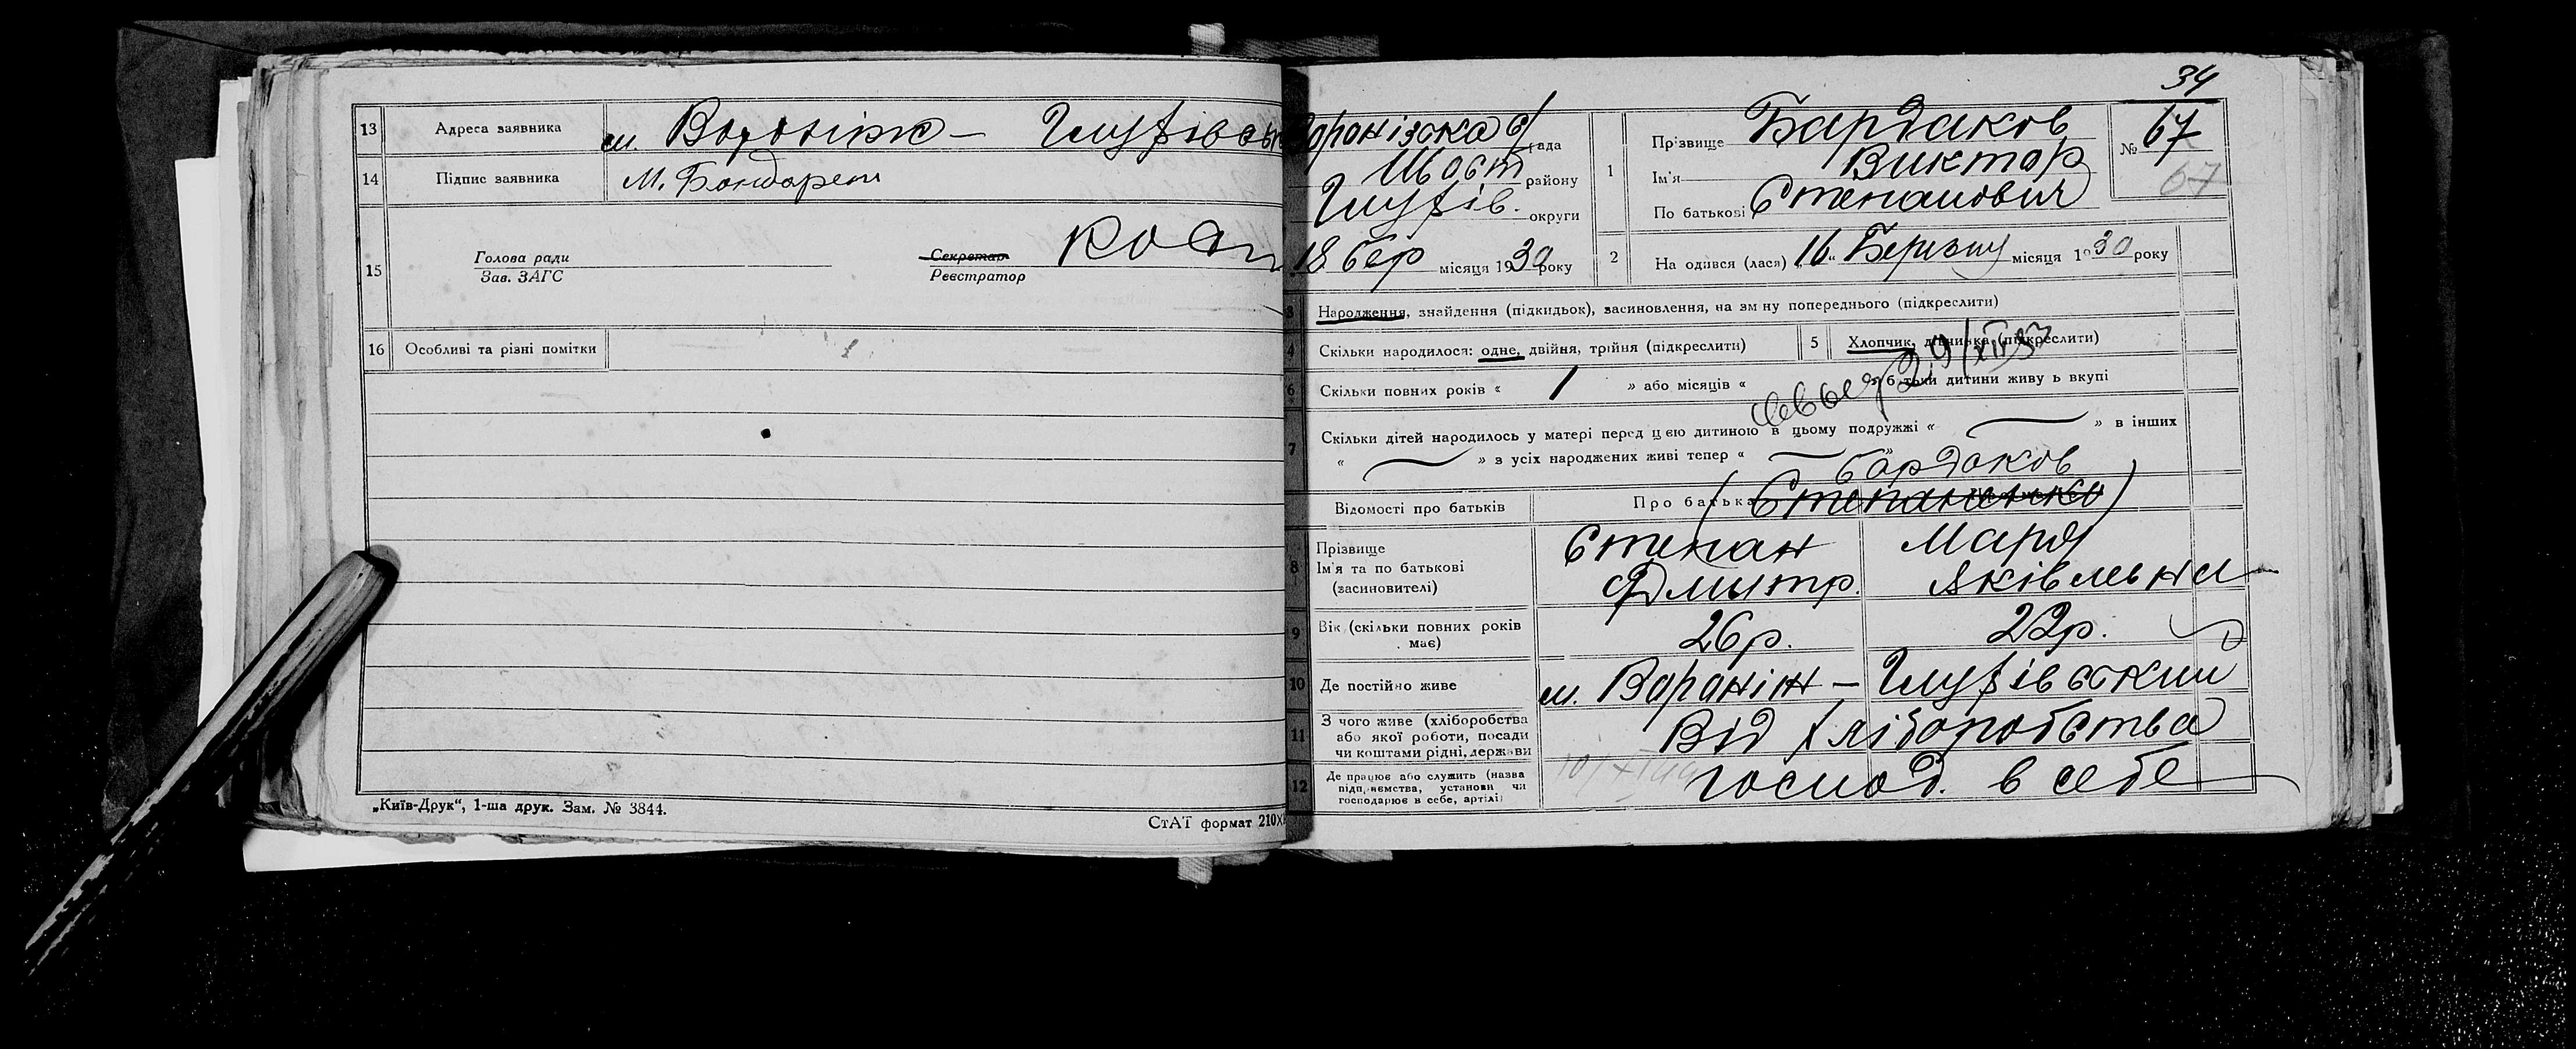 13 Адреса заявника м. Вороніж – Глухівськ
14 Підпис заявника М. Бондарен
15 Голова ради
Зав. ЗАГС
Секретар
Реєстратор
16 Особливі та різні помітки
„Київ-Друк“, 1-ша друк. Зам. № 3844.
СтАТ формат 210х
34
Воронізска с/рада
Шост району
Глухів. округи
18 бер місяця 1930 року
1 Прізвище Бардаков
Ім'я Виктор
По батькові Степанович
№ 67
67
2 На одився (лася) „16“ Березня місяця 1930 року
3 Народження, знайдення (підкидьок), засиновлення, на зм ну попереднього (підкреслити)
4 Скільки народилося: одне, двійня, трійня (підкреслити) 5 Хлопчик, дівчинка (підкреслити)
6 Скільки повних років « 1 » або місяців « » батьки дитини живу ь вкупі
29/XII 53
7 Скільки дітей народилось у матері перед цією дитиною в цьому подружжі « — » в інших
« — » з усіх народжених живі тепер «
Бардаков
Відомості про батьків Про батька (Степаненко)
8 Прізвище
Ім'я та по батькові
(засиновителі)
Степан Дмитр.
Маря Яківльна
9 Вік (скільки повних років має) 26 р. 22 р.
10 Де постійно живе м. Вороніж – Глухівський
11 З чого живе (хліборобства
або якої роботи, посади
чи коштами рідні, держави
Від хліборобства
12 Де працює або служить (назва
підприємства, установи чи
господарює в себе, артілі)
господ. в себе